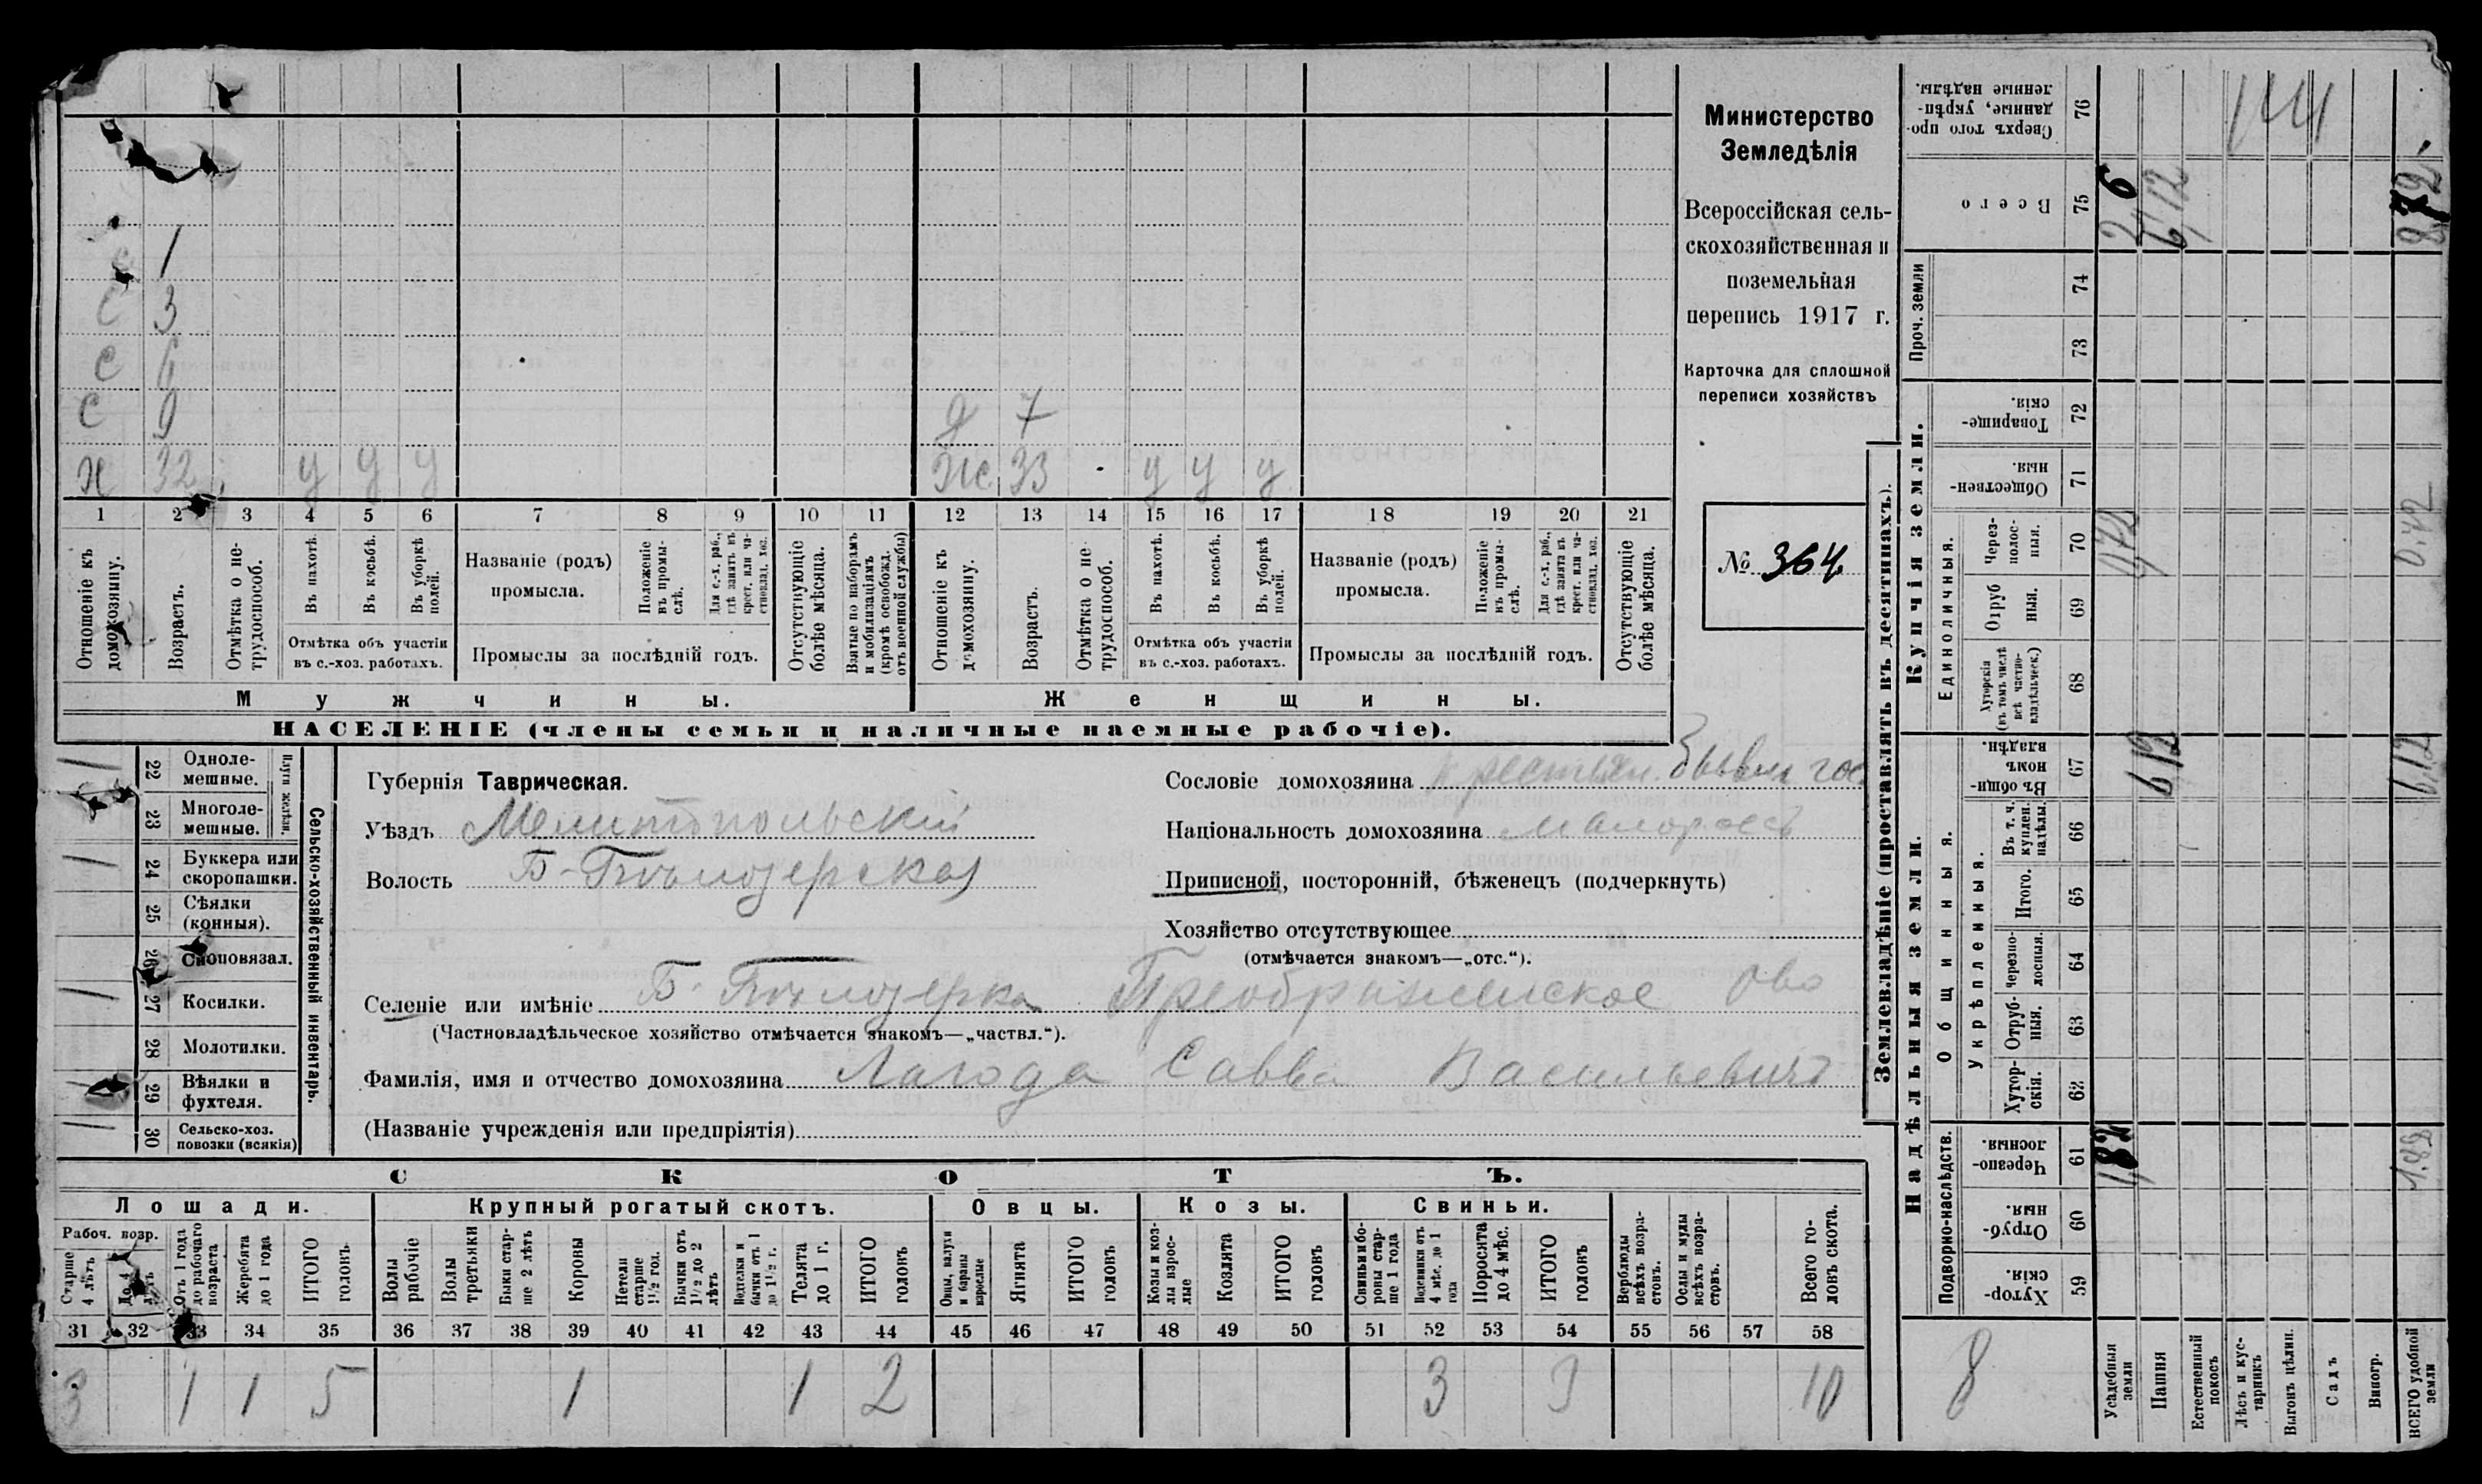 Министерство
Земледѣлія
Всероссійская сель-
скохозяйственная и
поземельная
перепись 1917 г.
Карточка для сплошной
переписи хозяйствъ
№ 364.
1
С 3
С 6
С 9
Х 32 у у у
д 7
Ж 33 у у у
1 2 3 4 5 6 7 8 9 10 11 12 13 14 15 16 17 18 19 20 21
Отношеніе къ домохозяину.
Возрастъ.
Отмѣтка о не-трудоспособ.
Въ пахотѣ.
Въ косьбѣ.
Въ уборкѣ полей.
Отмѣтка объ участіи
въ с.-хоз. работахъ.
Названіе (родъ)
промысла.
Положеніе въ промы-слѣ.
Для с.-х. раб., гдѣ занятъ въ крест. или ча-стновлад. хоз.
Промыслы за послѣдній годъ.
Отсутствующіе болѣе мѣсяца.
Взятые по наборамъ и мобилизаціямъ (кромѣ освобожд. отъ военной службы)
Отношеніе къ домохозяину.
Возрастъ.
Отмѣтка о не трудоспособ.
Въ пахотѣ.
Въ косьбѣ.
Въ уборкѣ полей.
Отмѣтка объ участіи
въ с.-хоз. работахъ.
Названіе (родъ)
промысла.
Положеніе въ промы-слѣ.
Для с.-х. раб., гдѣ занята въ крест. или ча-стновлад. хоз.
Промыслы за послѣдній годъ.
Отсутствующіе болѣе мѣсяца.
Мужчины.
Женщины.
НАСЕЛЕНІЕ (члены семьи и наличные наемные рабочіе).
22 Одноле-
мешные.
23 Многоле-
мешные.
Плуги желѣзн.
24 Буккера или
скоропашки.
25 Сѣялки
(конныя).
26 Сноповязал.
27 Косилки.
28 Молотилки.
29 Вѣялки и
фухтеля.
30 Сельско-хоз.
повозки (всякія)
Сельско-хозяйственный инвентарь.
Губернія Таврическая.
Уѣздъ Мелитопольскій
Волость Б-Бѣлозерская
Сословіе домохозяина крестьян. бывш гос
Національность домохозяина малороссъ
Приписной, посторонній, бѣженецъ (подчеркнуть)
Хозяйство отсутствующее
(отмѣчается знакомъ—„отс.“).
Селеніе или имѣніе Б. Бѣлозерка Преображенское Ово
(Частновладѣльческое хозяйство отмѣчается знакомъ—„частвл.“).
Фамилія, имя и отчество домохозяина Лагода Савва Васильевичъ
(Названіе учрежденія или предпріятія)
СКОТЪ.
Лошади. Крупный рогатый скотъ. Овцы. Козы. Свиньи.
Рабоч. возр.
Старше 4 лѣтъ
До 4 лѣтъ
Отъ 1 года до рабочаго возраста
Жеребята до 1 года
ИТОГО головъ
Волы рабочіе
Волы третьяки
Быки стар-ше 2 лѣтъ
Коровы
Нетели старше 1½ год.
Бычки отъ 1½ до 2 лѣтъ
Телки и бычки отъ 1 до 1½ г.
Телята до 1 г.
ИТОГО головъ
Овцы, валухи и бараны взрослые
Ягнята
ИТОГО головъ
Козы и коз-лы взрос-лые
Козлята
ИТОГО головъ
Свиньи и бо-ровы стар-ше 1 года
Подсвинки отъ 4 мѣс. до 1 года
Поросята до 4 мѣс.
ИТОГО головъ
Верблюды всѣхъ возра-стовъ.
Ослы и мулы всѣхъ возра-стовъ.
Всего го-ловъ скота.
31 32 33 34 35 36 37 38 39 40 41 42 43 44 45 46 47 48 49 50 51 52 53 54 55 56 57 58
3 1 1 5 1 1 2 3 3 10
Землевладѣніе (проставлять въ десятинахъ).
Сверхъ того про-
данные, укрѣп-
ленные надѣлы.
76
Всего
75
2 6
6,12
Проч. земли
74
73
Купчія земли.
Товарище-
скія.
72
Обществен-
ныя.
71
Единоличныя.
Через-
полос-
ныя.
70
0,42
Отруб
ныя.
69
Хуторскія
(въ томъ числѣ
всѣ частно-
владѣльческ.)
68
Надѣльныя земли.
Общинныя.
Въ общи-
номъ
владѣн.
67
6,12
6,12
Укрѣпленныя.
Въ т. ч.
куплен.
надѣлы.
66
Итого.
65
Черезпо-
лосныя.
64
Отруб-
ныя.
63
Хутор-
скія.
62
Подворно-наслѣдств.
Черезпо-
лосныя.
61
1,82
Отруб-
ныя.
60
Хутор-
скія.
59
8
Усадебныя земли
Пашня
Естественный покосъ
Лѣсъ и кус-тарникъ
Выгонъ цѣлин.
Садъ
Виногр.
ВСЕГО удобной земли